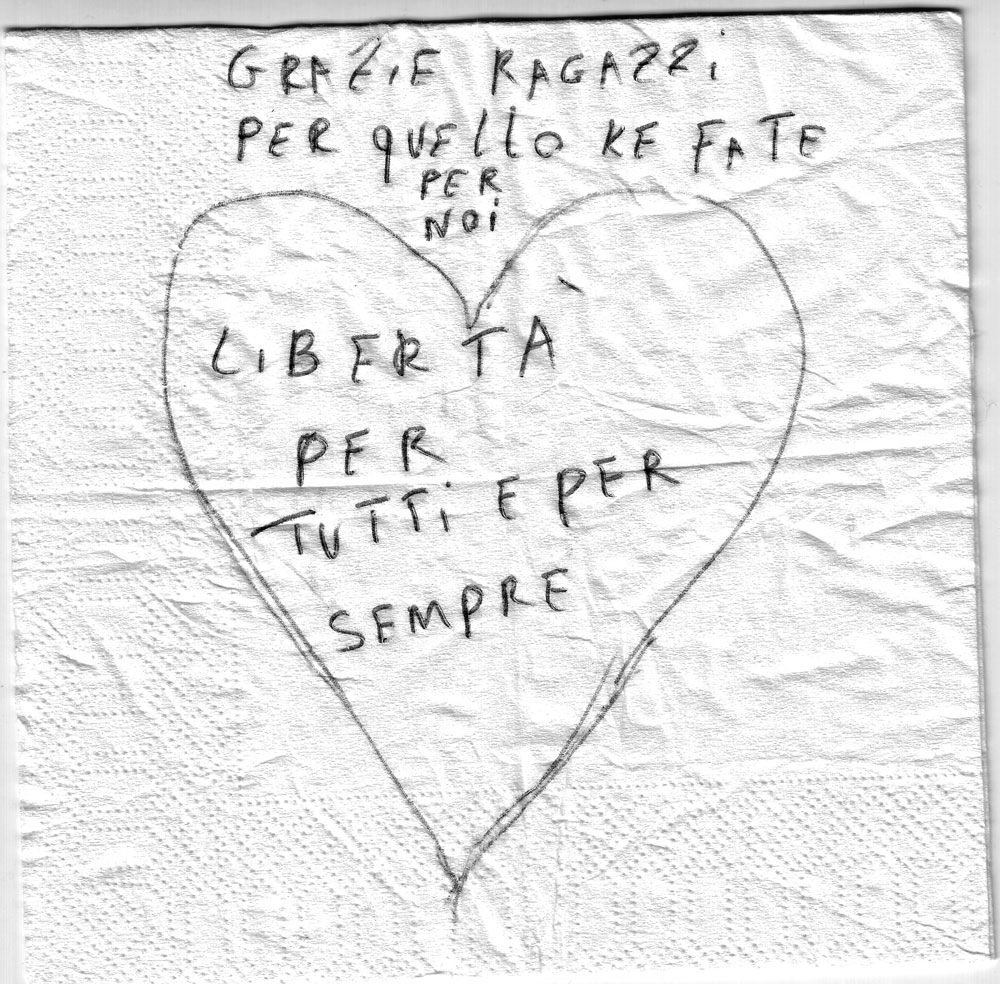 GRAZiE RAGAZZi
PER quEllo KE FATE
PER
NOi
LiBERTÀ
PER
TUTTi E PER
SEMPRE